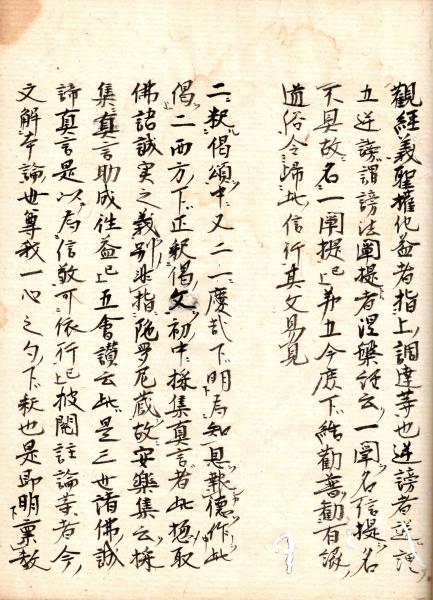 觀經義聖權化益者指上調達等也逆謗者逆謂
五逆謗謂謗法闡提者涅槃經云一闡名信提名
不具故名一闡提已上第五今度下結勸普勸有識
道俗令歸此信行其文易見
二釈偈頌中又二一慶哉下明為知恩報德作此
偈二西方下正釈偈文初中採集真言者此揔取
佛諸誠実之義別非指陁羅尼藏故安樂集云採
集真言助成往益已上五會讃云此是三世諸佛誠
諦真言是以為信敬可依行已上披閲註論等者今
文解本論世尊我一心之勺下釈也是即明稟教